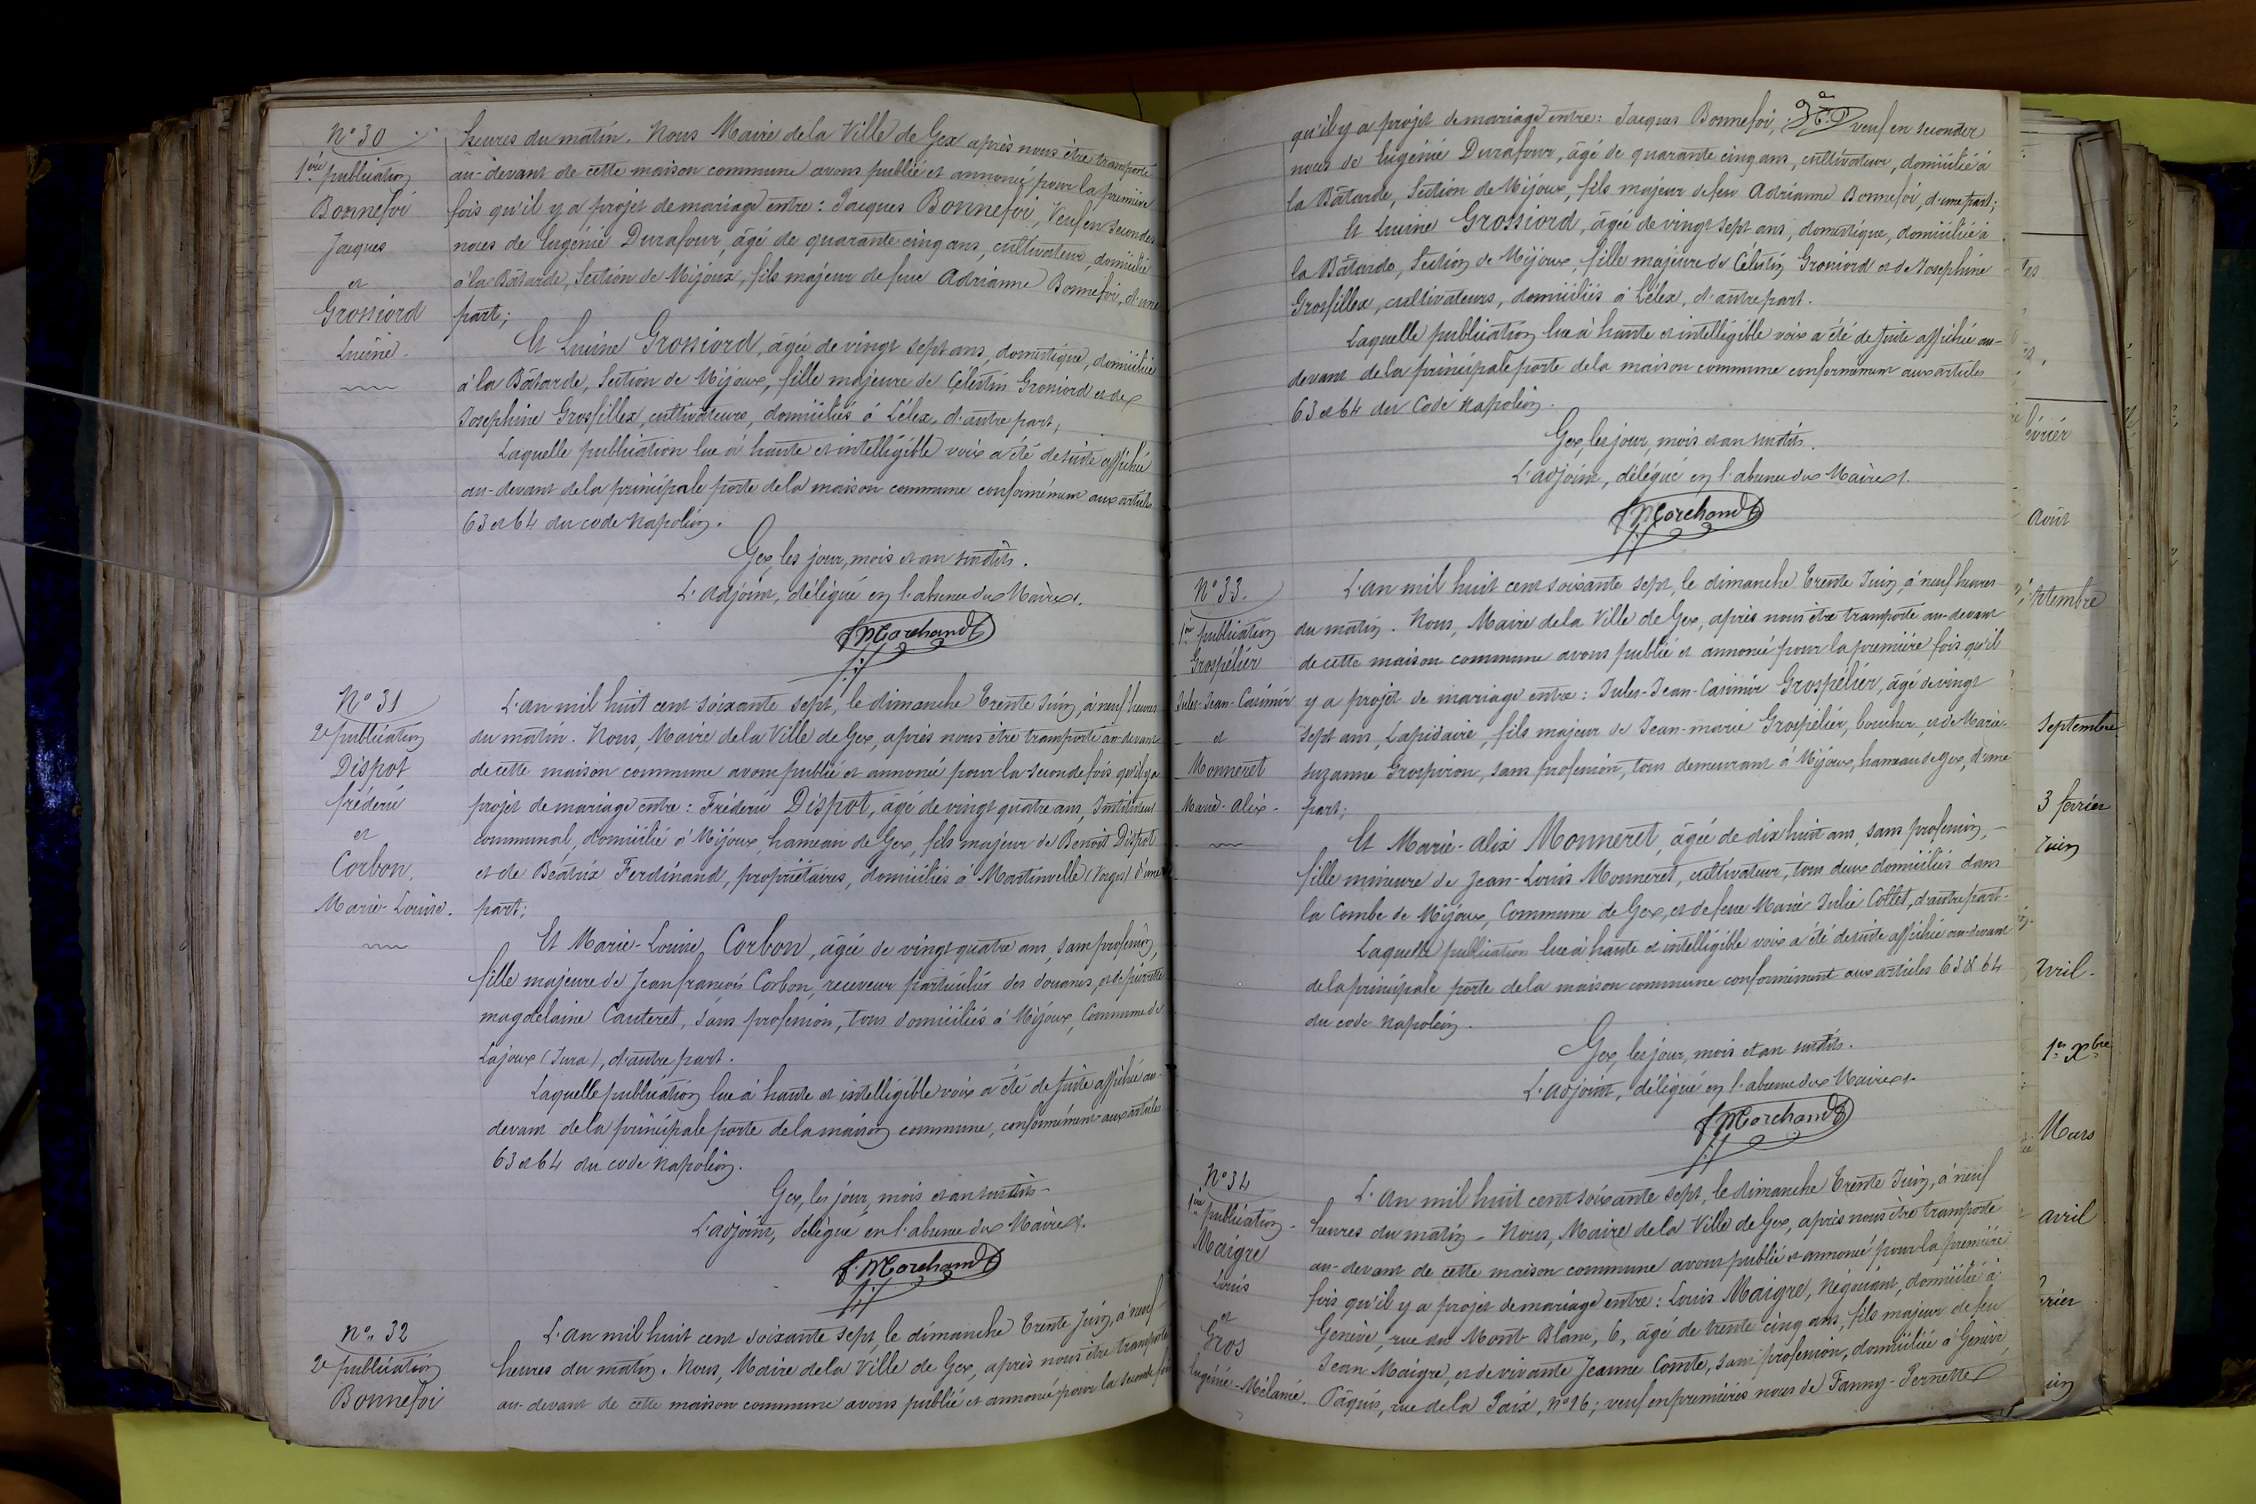 N° 30
1ère publication
Bonnefoi
Jacques
et
Grossiord
Lucine.
heures du matin. Nous Maire de la Ville de Gex après nous être transporté
au-devant de cette maison commune avons publié et annoncé pour la première
fois qu'il y a projet de mariage entre : Jacques Bonnefoi, Veuf en secondes
noces de Eugénie Durafour, âgé de quarante cinq ans, cultivateur, domicilié
à la Bâtarde, Section de Mijoux, fils majeur de feue Adrianne Bonnefoi, d'une
part;
Et Lucine Grossiord, âgée de vingt sept ans, domestique, domiciliée
à la Bâtarde, Section de Mijoux, fille majeure de Célestin Grossiord et de
Josephine Grosfillex, cultivateurs, domiciliés à Lélex, d'autre part;
Laquelle publication lue à haute et intelligible voix a été de suite affichée
au-devant de la principale porte de la maison commune conformément aux articles
63 et 64 du code Napoléon.
Gex, les jour, mois et an susdits.
L'adjoint, délégué en l'absence du Maire.
Marchand
N° 31
2e publication
Dispot
fréderic
et
Corbon.
Marie-Louise.
L'an mil huit cent soixante sept, le dimanche Trente Juin, à neuf heures
du matin. Nous, Maire de la Ville de Gex, après nous être transporté au-devant
de cette maison commune avons publié et annoncé pour la seconde fois qu'il y a
projet de mariage entre : Fréderic Dispot, âgé de vingt quatre ans, Instituteur
communal, domicilié à Mijoux, hameau de Gex, fils majeur de Benoit Dispot
et de Béatrix Ferdinand, propriétaires, domiciliés à Martinvelle (Vosges) d'une
part;
Et Marie-Louise Corbon, âgée de vingt quatre ans, sans profession,
fille majeure de Jean françois Corbon, receveur particulier des douanes, et de pierrette
magdelaine Cauteret, sans profession, tous domiciliés à Mijoux, Commune de
Lajoux (Jura), d'autre part.
Laquelle publication lue à haute et intelligible voix a été de suite affichée au-
devant de la principale porte de la maison commune, conformément aux articles
63 et 64 du code Napoléon.
Gex, les jour, mois et an susdits-
L'adjoint, délégué en l'absence du Maire.
Marchand
N° 32
2e publication
Bonnefoi
L'an mil huit cent soixante sept, le dimanche Trente Juin, à neuf
heures du matin. Nous, Maire de la Ville de Gex, après nous être transporté
au-devant de cette maison commune avons publié et annoncé pour la seconde fois
qu'il y a projet de mariage entre : Jacques Bonnefoi, veuf en secondes
noces de Eugénie Durafour, âgé de quarante cinq ans, cultivateur, domicilié à
la Bâtarde, Section de Mijoux, fils majeur de feue Adrianne Bonnefoi, d'une part;
Et Lucine Grossiord, âgée de vingt sept ans, domestique, domiciliée à
la Bâtarde, Section de Mijoux, fille majeure de Célestin Grossiord et de Josephine
Grosfillex, cultivateurs, domiciliés à Lélex, d'autre part.
Laquelle publication lue à haute et intelligible voix a été de suite affichée au-
devant de la principale porte de la maison commune conformément aux articles
63 et 64 du Code Napoléon.
Gex, les jour, mois et an susdits.
L'adjoint, délégué en l'absence du Maire.
Marchand
N° 33.
1ère publication
Grospélier
Jules-Jean-Casimir
et
Monneret
Marie-Alix-
L'an mil huit cent soixante sept, le dimanche Trente Juin, à neuf heures
du matin. Nous, Maire de la Ville de Gex, après nous être transporté au-devant
de cette maison commune avons publié et annoncé pour la première fois qu'il
y a projet de mariage entre : Jules-Jean-Casimir Grospélier, âgé de vingt
sept ans, Lapidaire, fils majeur de Jean-marie Grospélier, boucher, et de Marie-
suzanne Grospiron, sans profession, tous demeurant à Mijoux, hameau de Gex, d'une
part;
Et Marie-Alix Monneret, âgée de dix huit ans, sans profession,
fille mineure de Jean-Louis Monneret, cultivateur, tous deux domiciliés dans
la Combe de Mijoux, Commune de Gex, et de feue Marie Julie Collet, d'autre part-
Laquelle publication lue à haute et intelligible voix a été de suite affichée au-devant
de la principale porte de la maison commune conformément aux articles 63 & 64
du code Napoléon.
Gex, les jour, mois et an susdits.
L'adjoint, délégué en l'absence du Maire.
Marchand
N° 34
1ère publication-
Maigre
Louis
et
Gros
Eugénie-Mélanie.
L'an mil huit cent soixante sept, le dimanche Trente Juin, à neuf
heures du matin- Nous, Maire de la Ville de Gex, après nous être transporté
au-devant de cette maison commune avons publié et annoncé pour la première
fois qu'il y a projet de mariage entre : Louis Maigre, Négociant, domicilié à
Genève, rue du Mont-Blanc, 6, âgé de trente cinq ans, fils majeur de feu
Jean Maigre, et de vivante Jeanne Comte, sans profession, domiciliée à Genève,
Pâquis, rue de la Paix, n° 16; veuf en premières noces de Fanny-Pernette
Août
Septembre
3 février
Juin
Avril-
1er Xbre
Mars
avril